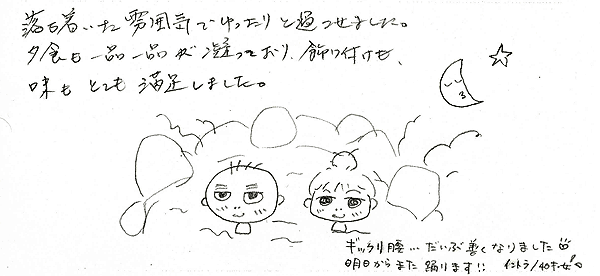 落ち着いた雰囲気でゆったりと過ごせました。
夕食も一品一品が凝っており、飾り付けも、
味もとても満足しました。
ギックリ腰…だいぶ善くなりました
明日からまた踊ります!!